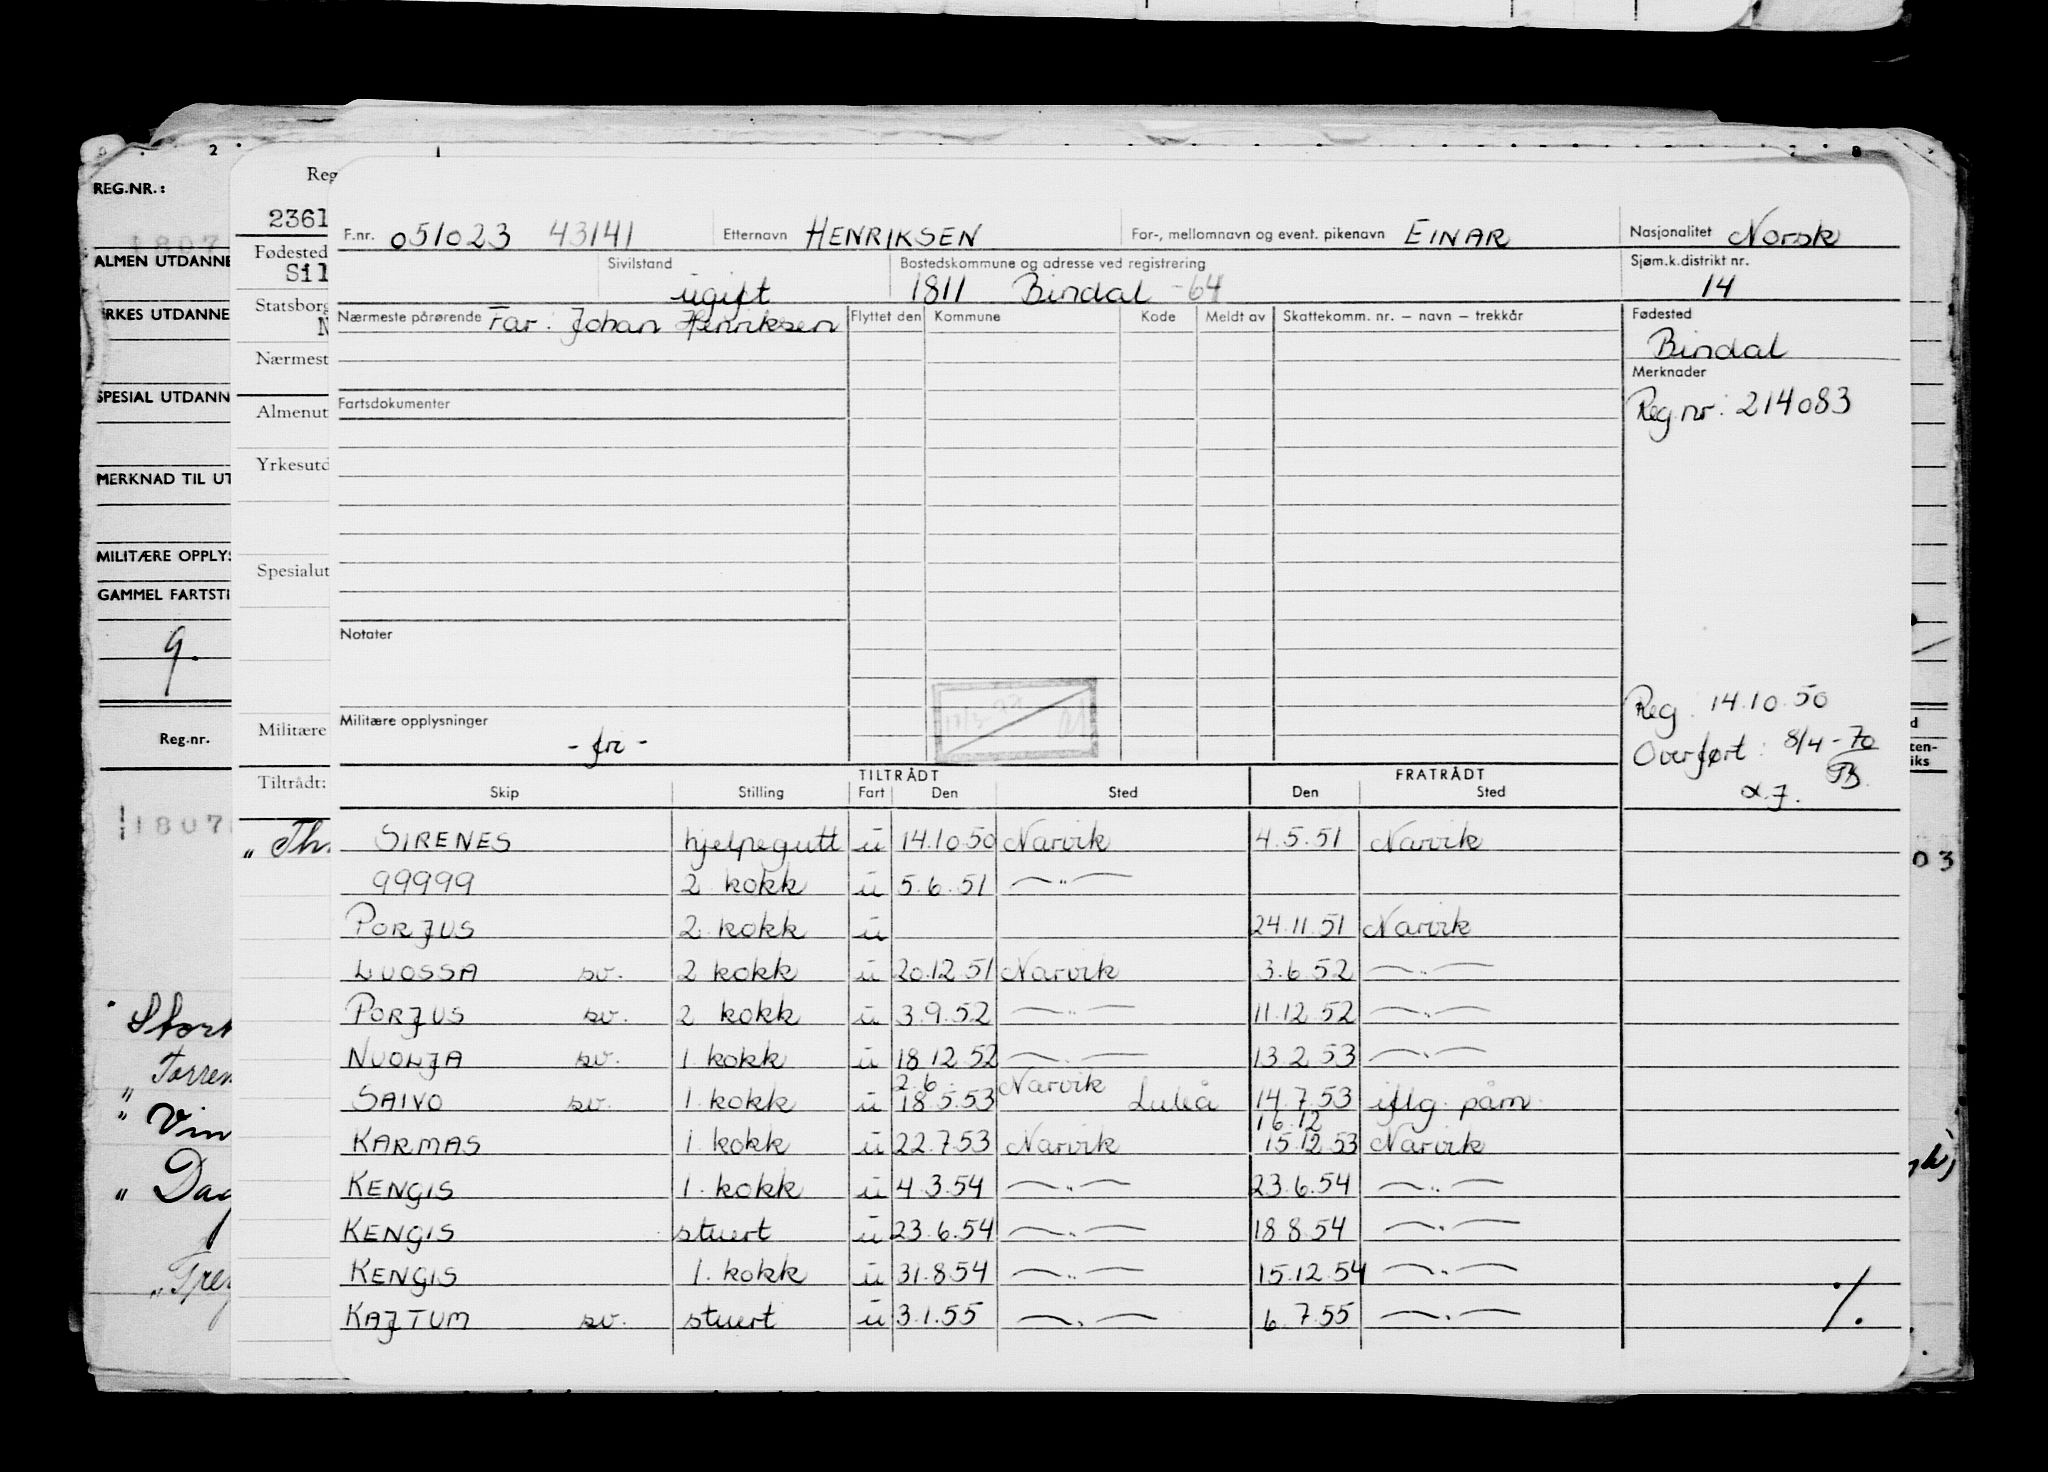 REG.NR.:
1807
ALMEN UTDANNE
YRKES UTDANNE
SPESIAL UTDANN
MERKNAD TIL UT
MILITÆRE OPPLYS
GAMMEL FARTSTI
9.
Reg.nr.
1807
Stor
Torren
" Vin
" Dag
Reg
2361
Fødested
Sil
Statsborg
N
Nærmest
Almenut
Yrkesutd
Spesialut
Militære
Tiltrådt:
" Th.
F.nr. 051023 43141 Etternavn HENRIKSEN For-, mellomnavn og event. pikenavn EINAR Nasjonalitet Norsk
Sivilstand ugift Bostedskommune og adresse ved registrering 1811 Bindal -64 Sjøm.k.distrikt nr. 14
Nærmeste pårørende Far: Johan Henriksen Flyttet den Kommune Kode Meldt av Skattekomm. nr. – navn – trekkår Fødested
Bindal
Merknader
Fartsdokumenter
Reg.nr: 214083
Notater
Reg. 14.10.50
Militære opplysninger
- fri -
Overført: 8/4-70
TILTRÅDT FRATRÅDT
Skip Stilling Fart Den Sted Den Sted
SIRENES hjelpegutt u 14.10.50 Narvik 4.5.51 Narvik
99999 2 kokk u 5.6.51 —"—
PORJUS 2 kokk u 24.11.51 Narvik
LUOSSA sv. 2 kokk u 20.12.51 Narvik 3.6.52 —"—
PORJUS sv. 2 kokk u 3.9.52 —"— 11.12.52 —"—
NUOLJA sv. 1. kokk u 18.12.52 —"— 13.2.53 —"—
2.6. Narvik
SAIVO sv. 1. kokk u 18.5.53 Luleå 14.7.53 iflg. påm.
16.12
KARMAS 1. kokk u 22.7.53 Narvik 15.12.53 Narvik
KENGIS 1. kokk u 4.3.54 —"— 23.6.54 —"—
KENGIS stuert u 23.6.54 —"— 18.8.54 —"—
KENGIS 1. kokk u 31.8.54 —"— 15.12.54 —"—
KAJTUM sv. stuert u 3.1.55 —"— 6.7.55 —"—
./.